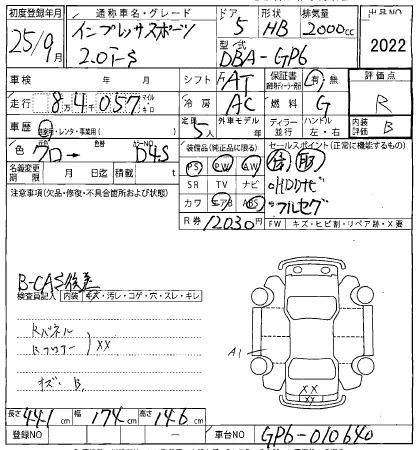 初度登録年月 通称車名・グレード ドア 形状 排気量 出品NO
25/9月 インプレッサスポーツ 5 HB 2000cc 2022
2.0i-S 型式 DBA-GP6
車検 年 月 シフト FAT 保証書 有 無 評価点
走行 8万4千057 マイル キロ 冷房 AC 燃料 G R
車歴 自家用・レンタ・事業用( ) 定員 5人 外車モデル 年 ディーラー 並行 ハンドル 左・右 内装評価 B
色 クロ→ 色替 カラーNO D4S 装備品(純正品に限る) セールスポイント(正常に機能するもの)
名義変更期限 月 日迄 積載 t PS PW AW
注意事項(欠品・修復・不具合箇所および状態) SR TV ナビ HDDナビ
カワ エアB ABS フルセグ
R券 12030円 FW キズ・ヒビ割・リペア跡・X要
B-CAS後差
検査員記入 内装 キズ・汚レ・コゲ・穴・スレ・キレ
Rパネル
Rフロアー XX
キズ・B.
A1
XX
長さ 441cm 幅 174cm 高さ 146cm
登録NO ― 車台NO GP6-010640